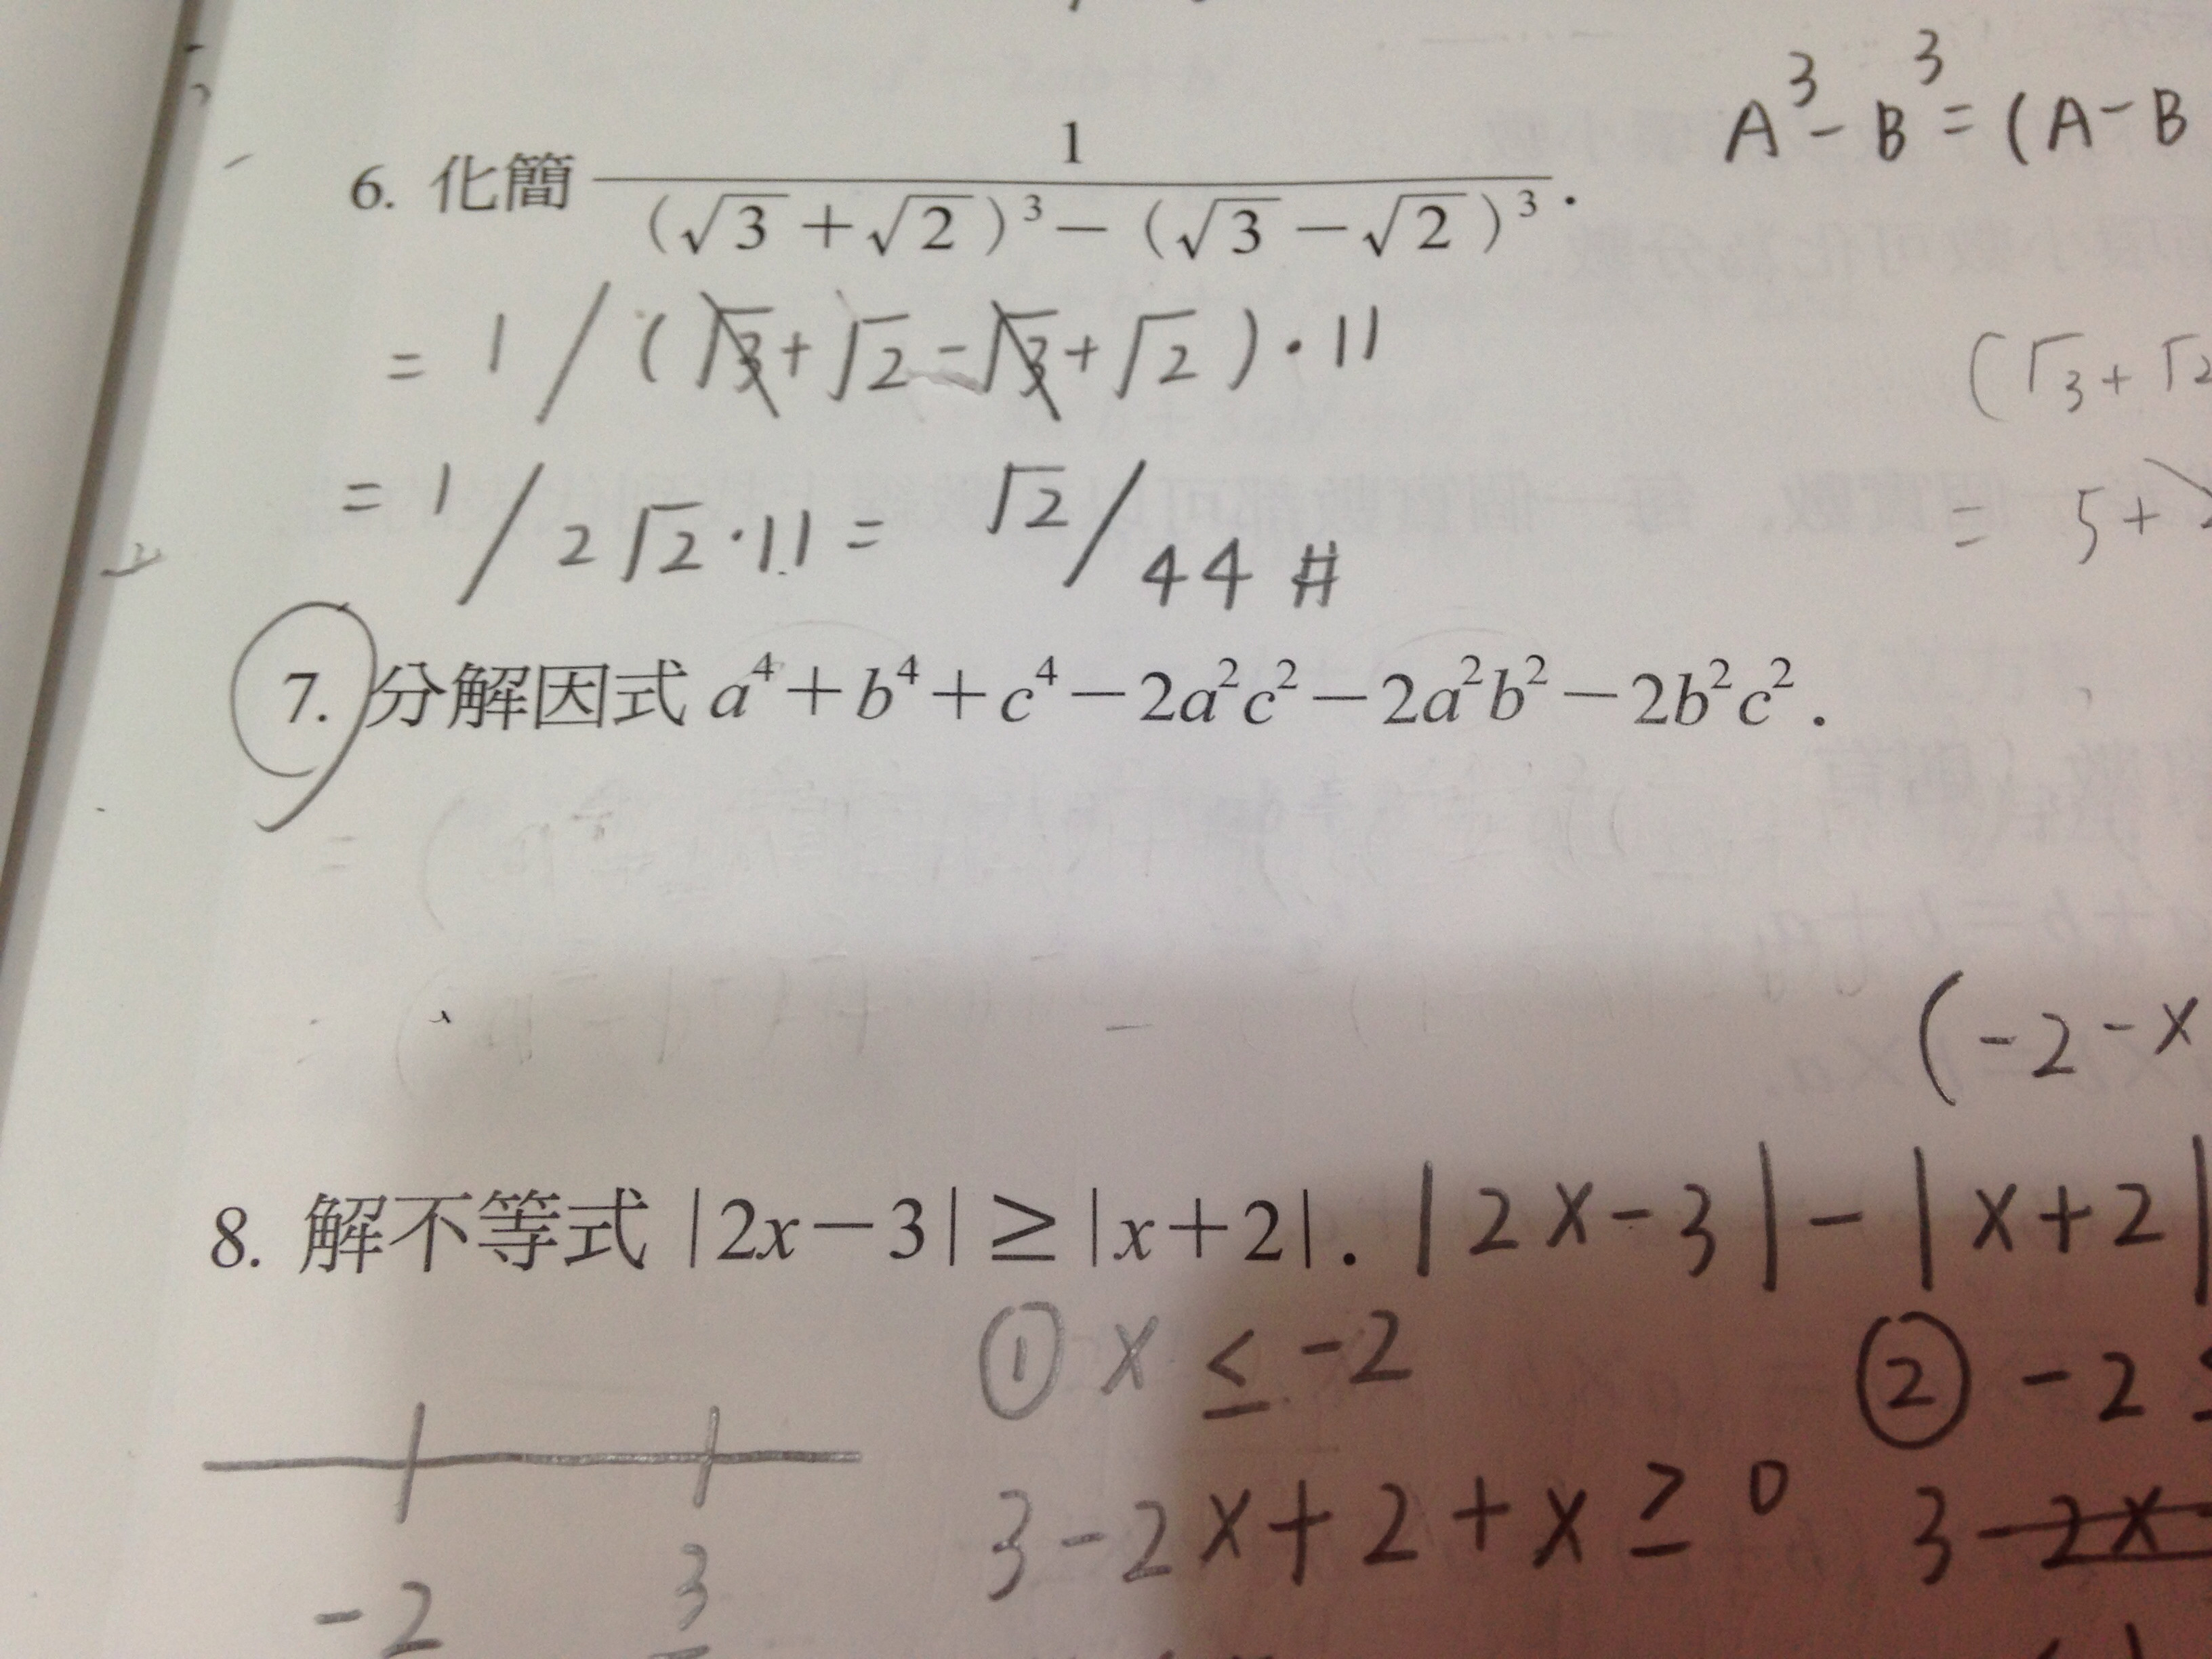 A³-B³=(A-B
6. 化簡 1/((√3+√2)³-(√3-√2)³).
= 1/(√3+√2-√3+√2)·11
(√3+√2
= 1/2√2·11 = √2/44 #
= 5+
7. 分解因式 a⁴+b⁴+c⁴-2a²c²-2a²b²-2b²c².
(-2-x
8. 解不等式 |2x-3|≥|x+2|. |2x-3|-|x+2|
① x ≤ -2
② -2 ≤
3-2x+2+x ≥ 0
3-2x
-2 3